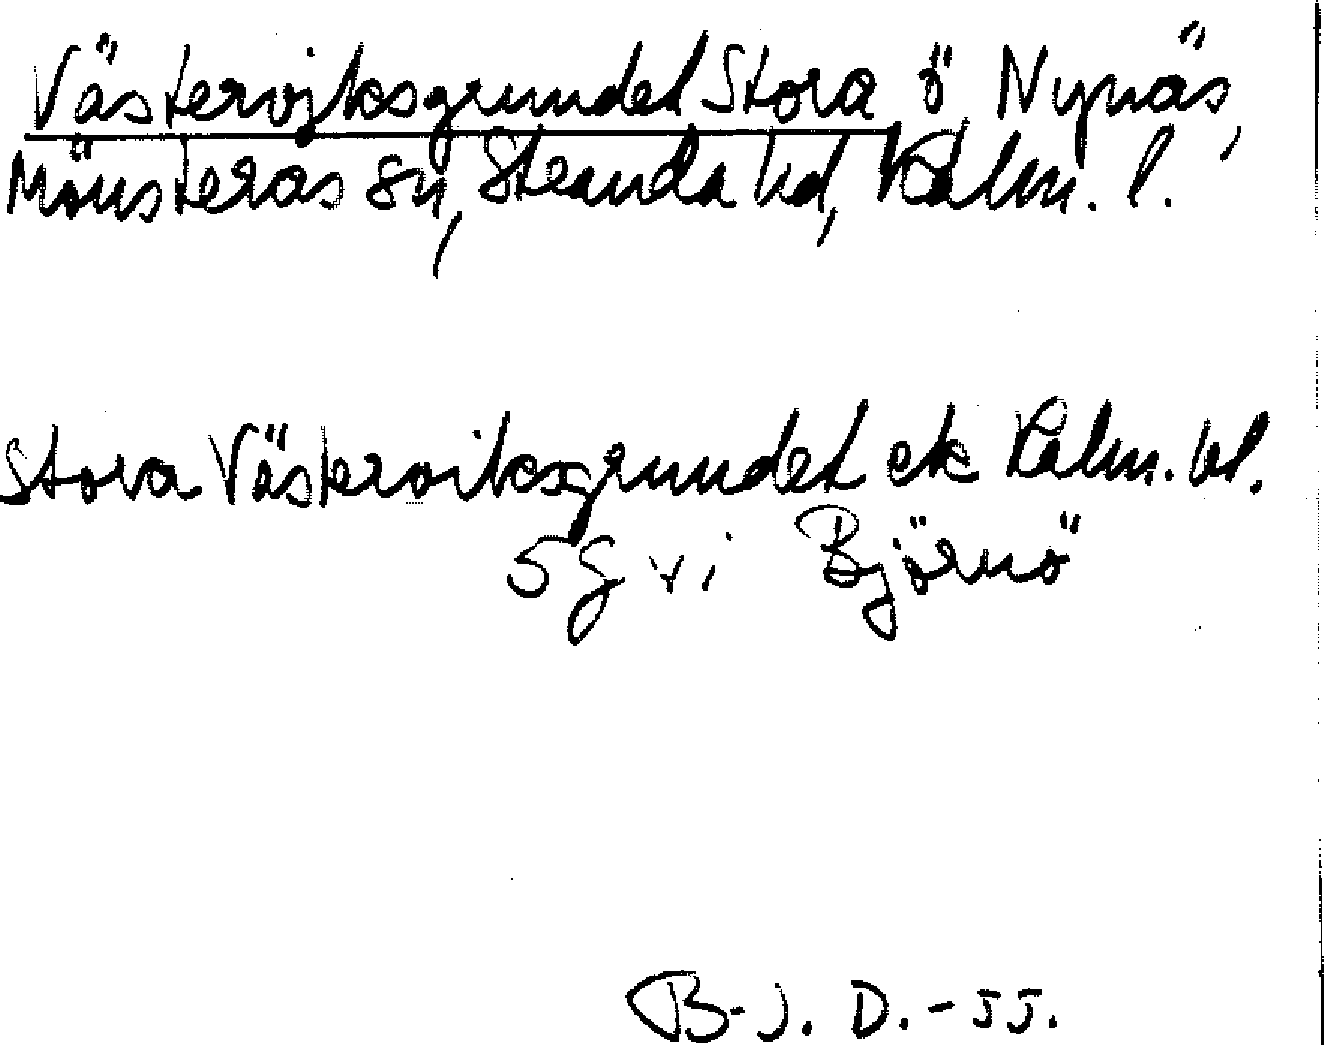 Västerviksgrundet Stora ö Nynäs,
Mönsterås sn, Stranda hd, Kalm. l.
Stora Västerviksgrundet ek Kalm. bl.
5g vi Björnö
B-J. D. - 55.